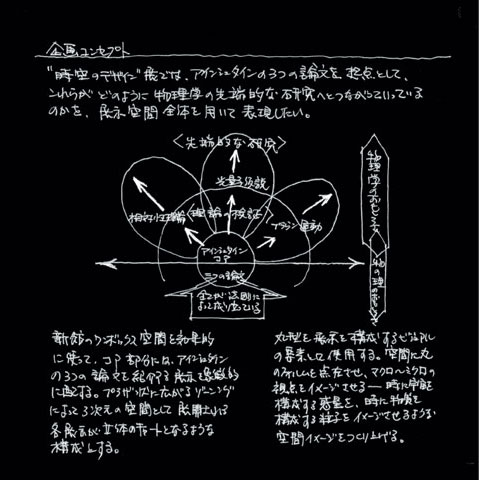 企画コンセプト
"時空のデザイン"展では、アインシュタインの3つの論文を、起点として、
これらが どのように 物理学の先端的な研究へとつながっていっている
のかを、展示空間全体を用いて表現したい。
〈先端的な研究〉
光量子仮説
〈理論の検証〉
相対性理論
ブラウン運動
アインシュタイン
コア
三つの論文
全てが法則に
よって成り立っている
物理学の
物の理
新館のワンボックス空間を効果的
に使って、コア部分には、アインシュタイン
の3つの論文を紹介する展示を
に配する。
によって3次元の空間として
各展示が立体のチャートとなるような
構成とする。
丸型を展示を構成するビジュアル
の要素として使用する。空間に丸
のフォルムを点在させ、マクロ〜ミクロの
視点をイメージさせる—時に宇宙を
構成する惑星を、時に物質を
構成する粒子をイメージさせるような
空間イメージをつくり上げる。